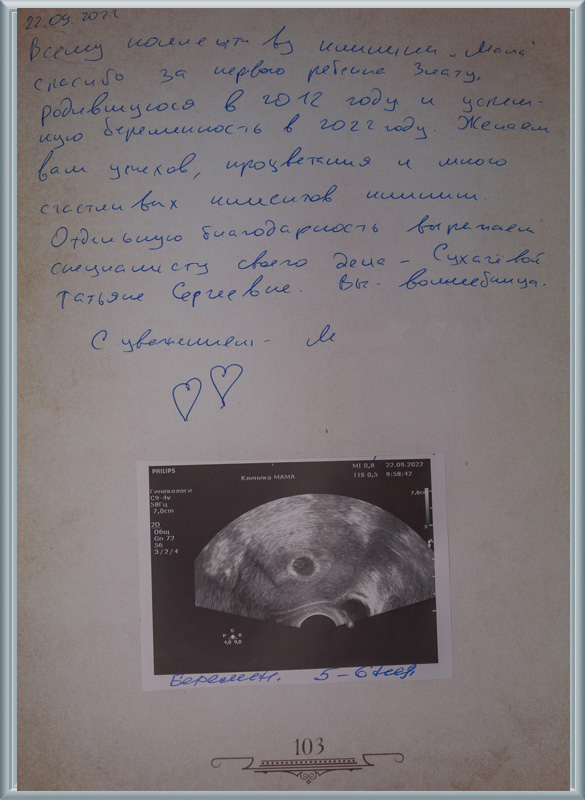 22.09.2022
Всему коллективу клиники „Мама"
спасибо за первого ребенка Злату,
родившуюся в 2012 году и успеш-
ную беременность в 2022 году. Желаем
вам успехов, процветания и много
счастливых клиентов клинике.
Отдельную благодарность выражаем
специалисту своего дела – Сухачёвой
Татьяне Сергеевне. Вы волшебница.
С уважением - М
PHILIPS
Клиника МАМА
MI 0,8 22.09.2022
TIS 0,5 9:58:42
Гинекологи
C9-4v
58Гц
7,0cm
7,0cm
2D
Общ
Gn 72
56
3/2/4
Беремен. 5-6 нед.
103